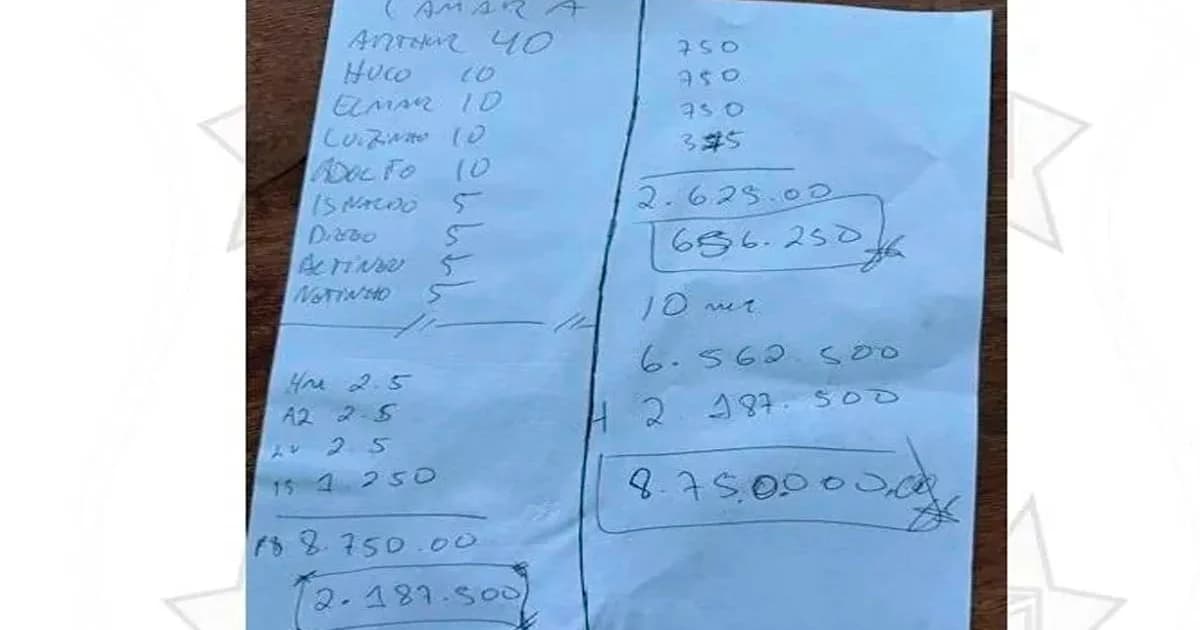 CAMARA
ARTHUR 40
HUGO 10
ELMAR 10
LUIZINHO 10
ADOLFO 10
ISNALDO 5
DIEGO 5
ALTINEU 5
NETINHO 5
2.5
A2 2.5
LU 2.5
IS 1.250
R$ 8.750.00
2.187.500
750
750
750
375
2.625.00
656.250
10 mes
6.562.500
+ 2 187.500
8.750.000,00